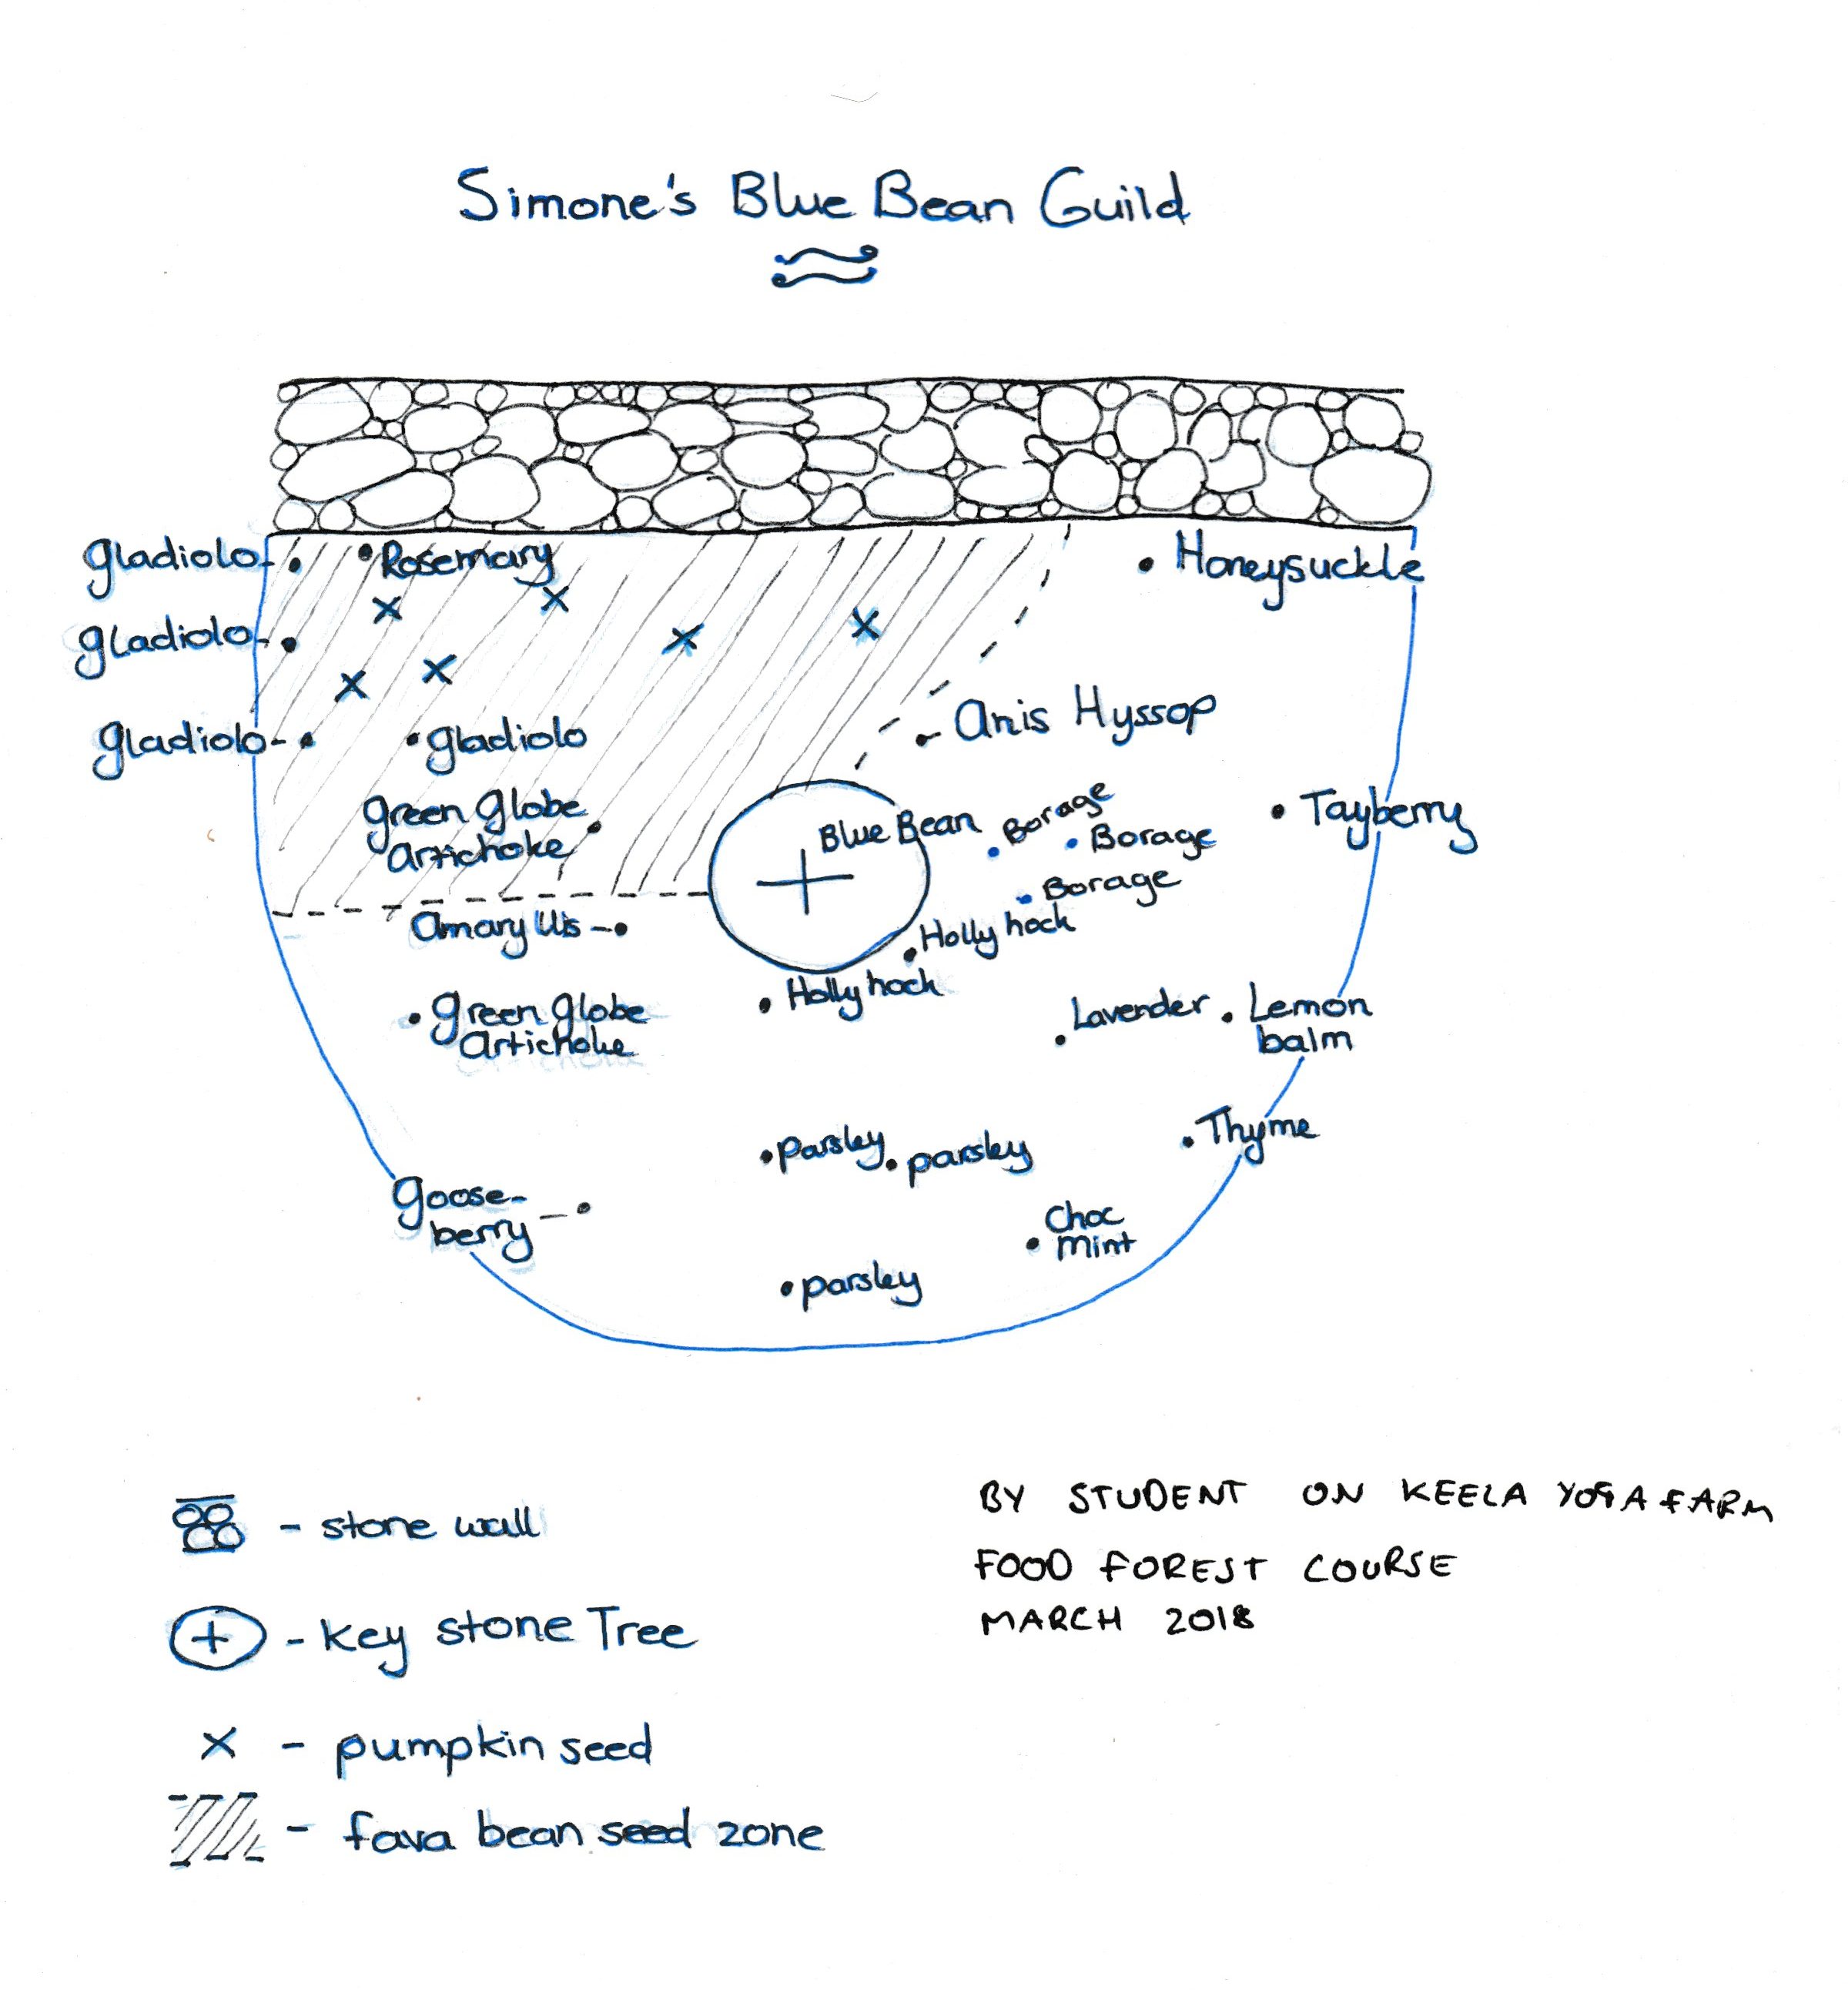 Simone's Blue Bean Guild
gladiolo
Rosemary
Honeysuckle
gladiolo
Anis Hyssop
gladiolo
gladiolo
Green Globe
Artichoke
Blue Bean
Borage
Borage
Tayberry
Borage
Amaryllis
Hollyhock
Hollyhock
Green Globe
Artichoke
Lavender
Lemon
balm
Thyme
parsley
parsley
Goose-
berry
Choc
mint
parsley
- stone wall
- Key stone Tree
x - pumpkin seed
- fava bean seed zone
BY STUDENT ON KEELA YOGA FARM
FOOD FOREST COURSE
MARCH 2018